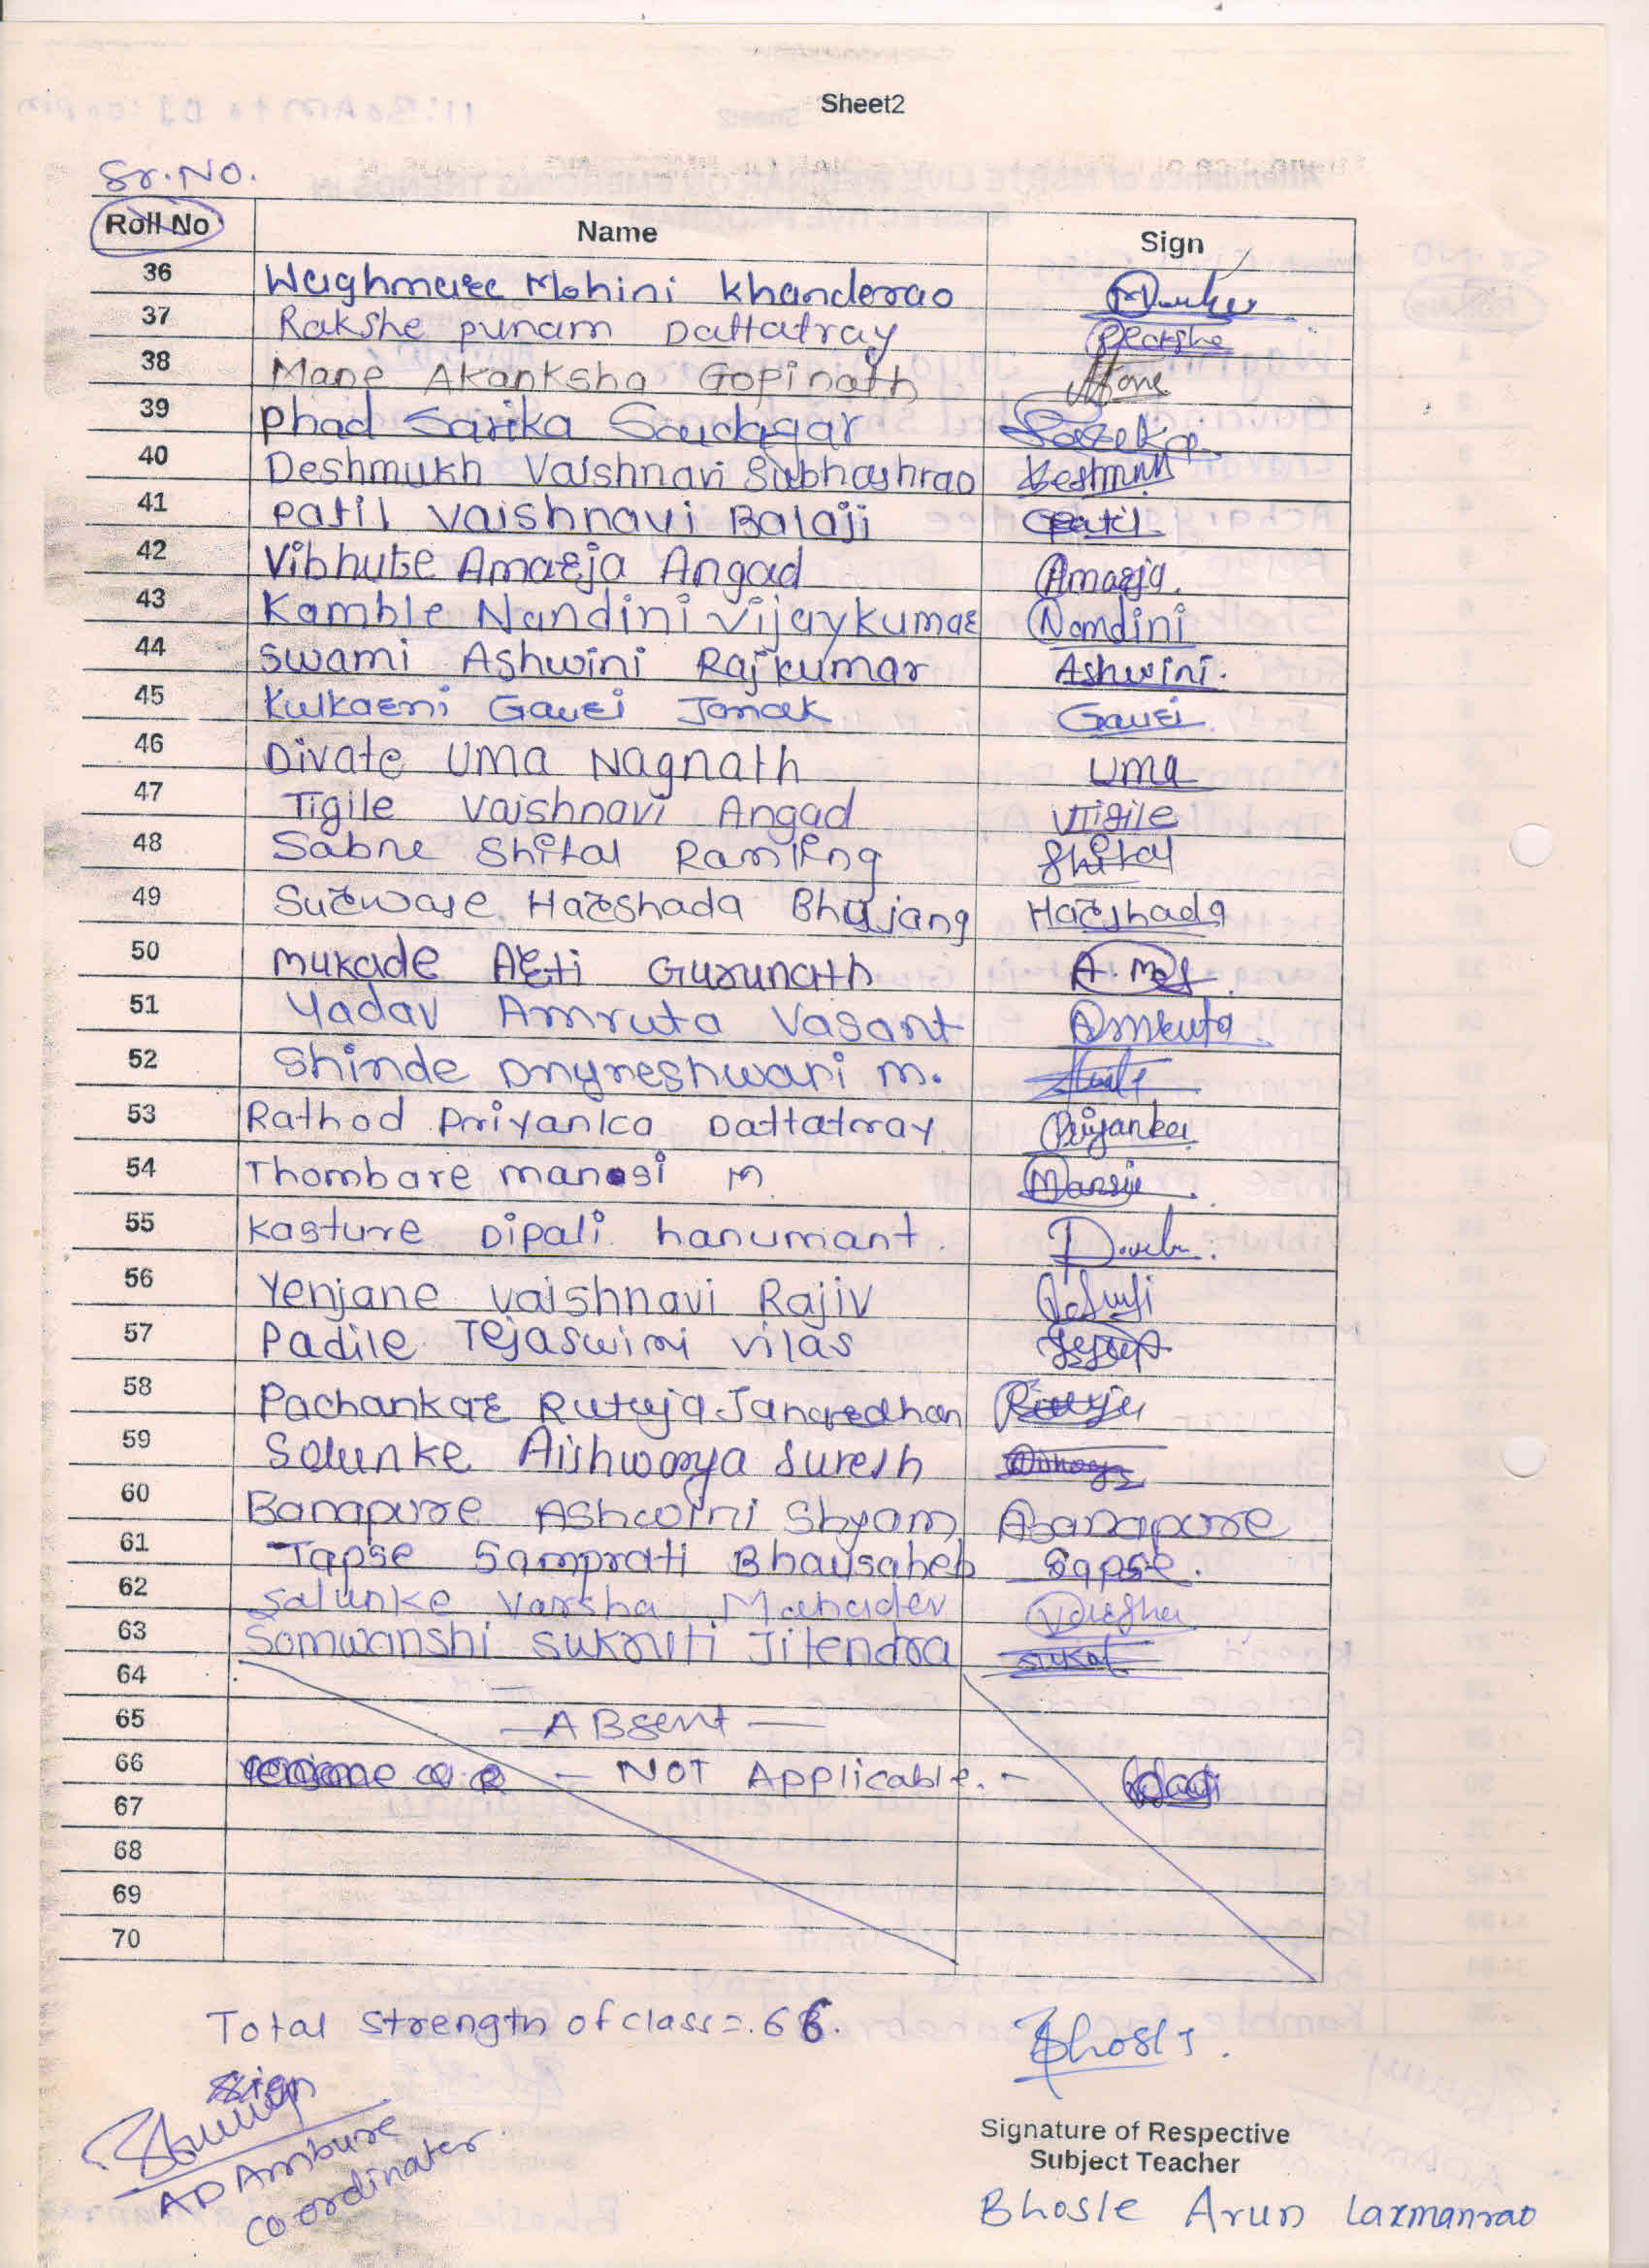 Sheet2
Sr.No.
Roll No Name Sign
36 Waghmare Mohini Khanderao
37 Rakshe punam Dattatray Rakshe
38 Mane Akanksha Gopinath Mane
39 Phad Sarika Saudagar Sarika
40 Deshmukh Vaishnavi Subhashrao Deshmukh
41 Patil Vaishnavi Balaji Patil
42 Vibhute Amarja Angad Amarja.
43 Kamble Nandini Vijaykumar Nandini
44 Swami Ashwini Rajkumar Ashwini.
45 Kulkarni Gauri Janak Gauri
46 Divate Uma Nagnath Uma
47 Tigile Vaishnavi Angad VTigile
48 Sabne Shital Ramling Shital
49 Surwase Harshada Bhujang Harshada
50 Mukade Arti Gurunath
51 Yadav Amruta Vasant Amruta
52 Shinde Dnyneshwari M.
53 Rathod Priyanka Dattatray Priyanka
54 Thombare manasi M Mansi
55 Kasture Dipali hanumant.
56 Yenjane Vaishnavi Rajiv
57 Padile Tejaswini Vilas
58 Pachankar Rutuja Janardhan Rutuja
59 Solunke Aishwarya Suresh
60 Banapure Ashwini Shyam Abanapure
61 Tapse Samprati Bhausaheb Tapse.
62 Salunke Varsha Mahadev Varsha
63 Somwanshi Sukruti Jitendra
64
65 — ABsent —
66 - NOT Applicable. -
67
68
69
70
Total Strength of class = 66.
Bhosle.
Sign
AD Ambure
co ordinater
Signature of Respective
Subject Teacher
Bhosle Arun Laxmanrao